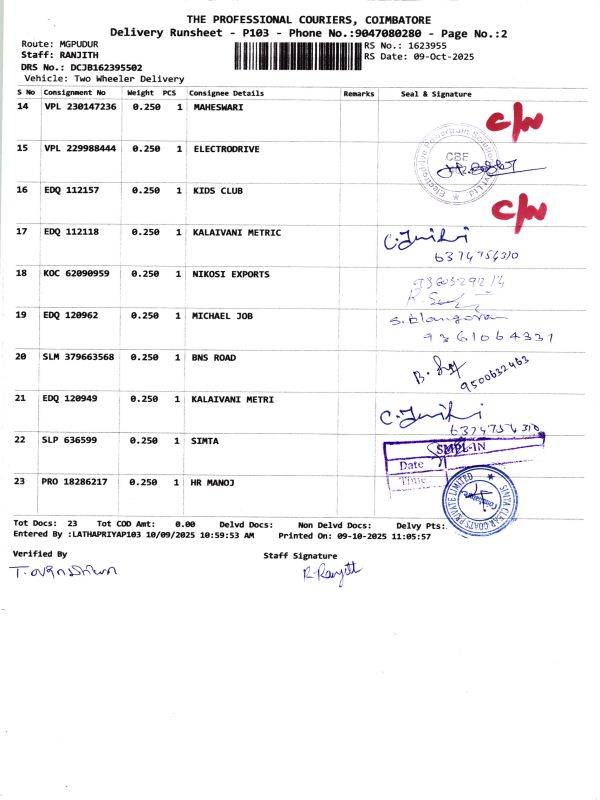 THE PROFESSIONAL COURIERS, COIMBATORE
Delivery Runsheet - P103 - Phone No.:9047080280 - Page No.:2
Route: MGPUDUR
RS No.: 1623955
Staff: RANJITH
RS Date: 09-Oct-2025
DRS No.: DCJB162395502
Vehicle: Two Wheeler Delivery
S No Consignment No Weight PCS Consignee Details Remarks Seal & Signature
14 VPL 230147236 0.250 1 MAHESWARI
C/N
15 VPL 229988444 0.250 1 ELECTRODRIVE
Electrodrive Powertrain Solutions Pvt Ltd
CBE
16 EDQ 112157 0.250 1 KIDS CLUB
C/N
17 EDQ 112118 0.250 1 KALAIVANI METRIC
6374756310
18 KOC 62090959 0.250 1 NIKOSI EXPORTS
19 EDQ 120962 0.250 1 MICHAEL JOB
S. Elangovan
9361064331
20 SLM 379663568 0.250 1 BNS ROAD
9500632463
21 EDQ 120949 0.250 1 KALAIVANI METRI
6374756310
22 SLP 636599 0.250 1 SIMTA
SMPL-IN
Date
Time
23 PRO 18286217 0.250 1 HR MANOJ
SIMTA CLEAR COATS PRIVATE LIMITED
Coimbatore
Tot Docs: 23 Tot COD Amt: 0.00 Delvd Docs: Non Delvd Docs: Delvy Pts:
Entered By :LATHAPRIYAP103 10/09/2025 10:59:53 AM Printed On: 09-10-2025 11:05:57
Verified By
Staff Signature
R. Ranjith